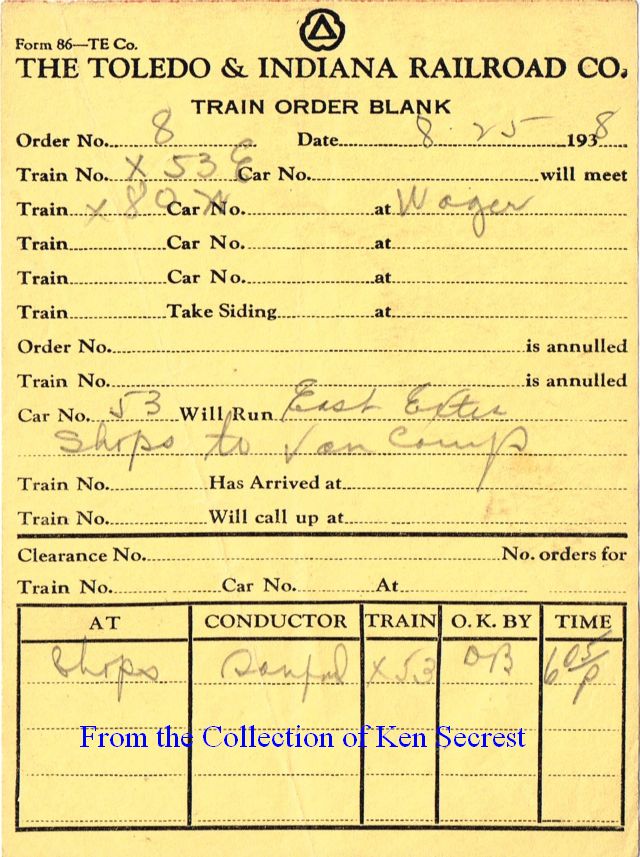 Form 86—TE Co.
THE TOLEDO & INDIANA RAILROAD CO.
TRAIN ORDER BLANK
Order No. 8 Date 8 25 1938
Train No. X 53 E Car No. will meet
Train X 80 W Car No. at Wager
Train Car No. at
Train Car No. at
Train Take Siding at
Order No. is annulled
Train No. is annulled
Car No. 53 Will Run East Extra
Shops to Van Camp
Train No. Has Arrived at
Train No. Will call up at
Clearance No. No. orders for
Train No. Car No. At
AT CONDUCTOR TRAIN O. K. BY TIME
Shops X 53 OB 6 05/P
From the Collection of Ken Secrest